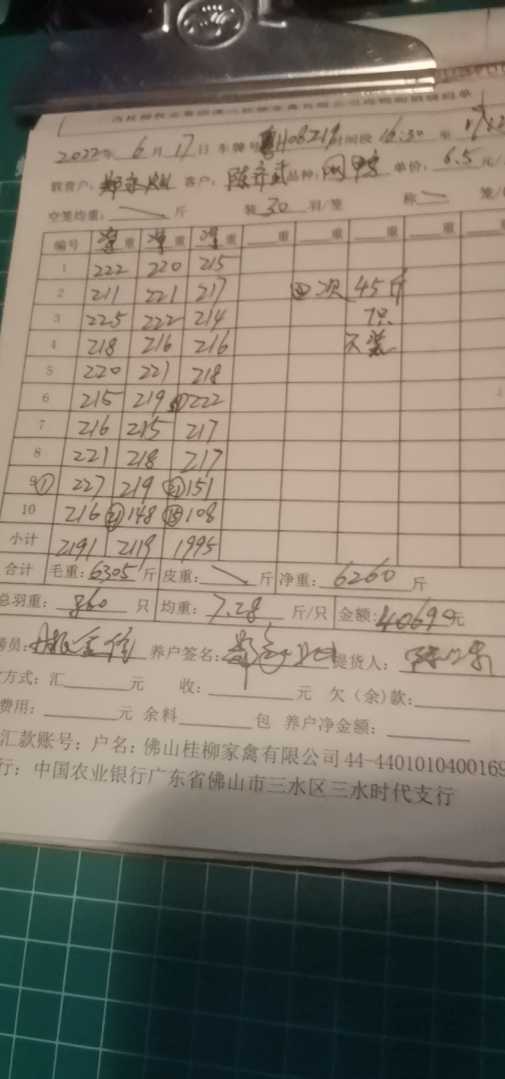 2022年 6 月 17 日 车牌号 粤H08219 时间段 16:30 至
客户: 品种: 网鸭 单价: 6.5 元/
空笼均重: 斤 装 30 羽/笼 称 笼/
编号 净重 净重 净重 重 重 重 重
1 222 220 215
2 211 221 217 次 45斤
3 225 222 214 7只
4 218 216 216 不装
5 220 221 218
6 215 219 222
7 216 215 217
8 221 218 217
9 ① 227 219 ㉑ 151
10 216 ㉑ 148 ⑮ 108
小计 2191 2119 1995
合计 毛重: 6305 斤 皮重: 斤 净重: 6260 斤
总羽重: 860 只 均重: 7.28 斤/只 金额: 40690元
养户签名: 提货人:
方式: 汇 元 收: 元 欠(余)款:
费用: 元 余料 包 养户净金额:
汇款账号: 户名: 佛山桂柳家禽有限公司 44-4401010400169
行: 中国农业银行广东省佛山市三水区三水时代支行